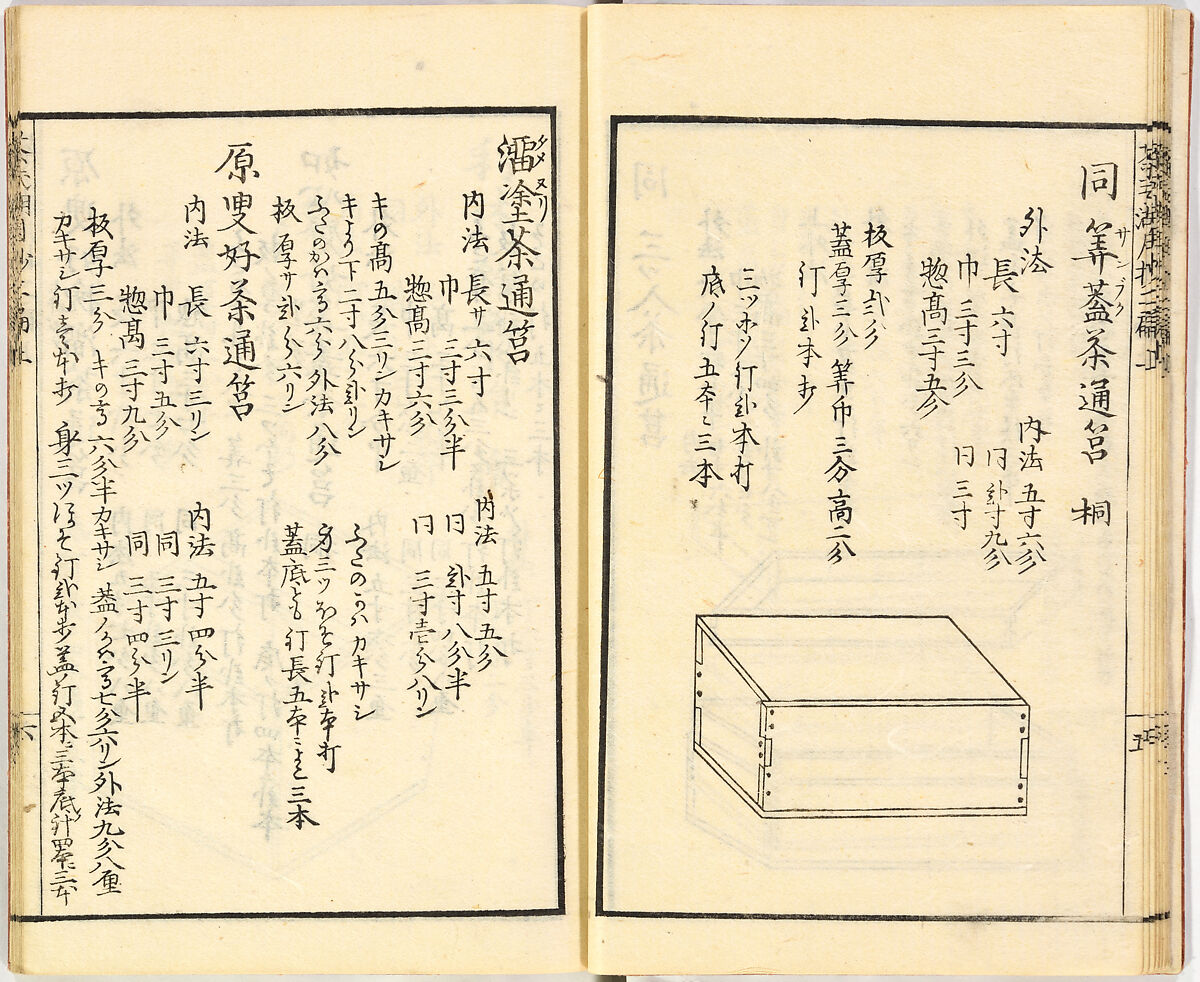 同 筭蓋茶通筥 桐
サンブタ
外法
長 六寸
巾 三寸三分
惣高三寸五分
内法 五寸六分
日 弐寸九分
日 三寸
板厚弐分
蓋厚三分 筭巾三分 高二分
釘弐本ヅヽ
三ツホゾ釘弐本打
底ノ釘 五本ニ三本
溜塗茶通筥
タメヌリ
内法 長サ 六寸
巾 三寸三分半
惣高 三寸六分
内法 五寸五分
日 弐寸八分半
日 三寸壱分八リン
キの高 五分三リンカキサシ
キより下二寸八分弐リン
ふたのかハ高六分 外法八分
板厚サ弐分六リン
ふたのかハカキサシ
身三ツほそ釘弐本打
蓋底とも釘長五本ニよこ三本
原叟好茶通筥
内法 長 六寸三リン
巾 三寸五分
惣高 三寸九分
内法 五寸四分半
同 三寸三リン
同 三寸四分半
板厚三分 キの高 六分半カキサシ 蓋ノかハ高七分六リン外法九分八厘
カキサシ釘 身三ツほそ釘弐本 蓋ノ釘五本ニ三本底ノ釘四本ニ三本
五
六